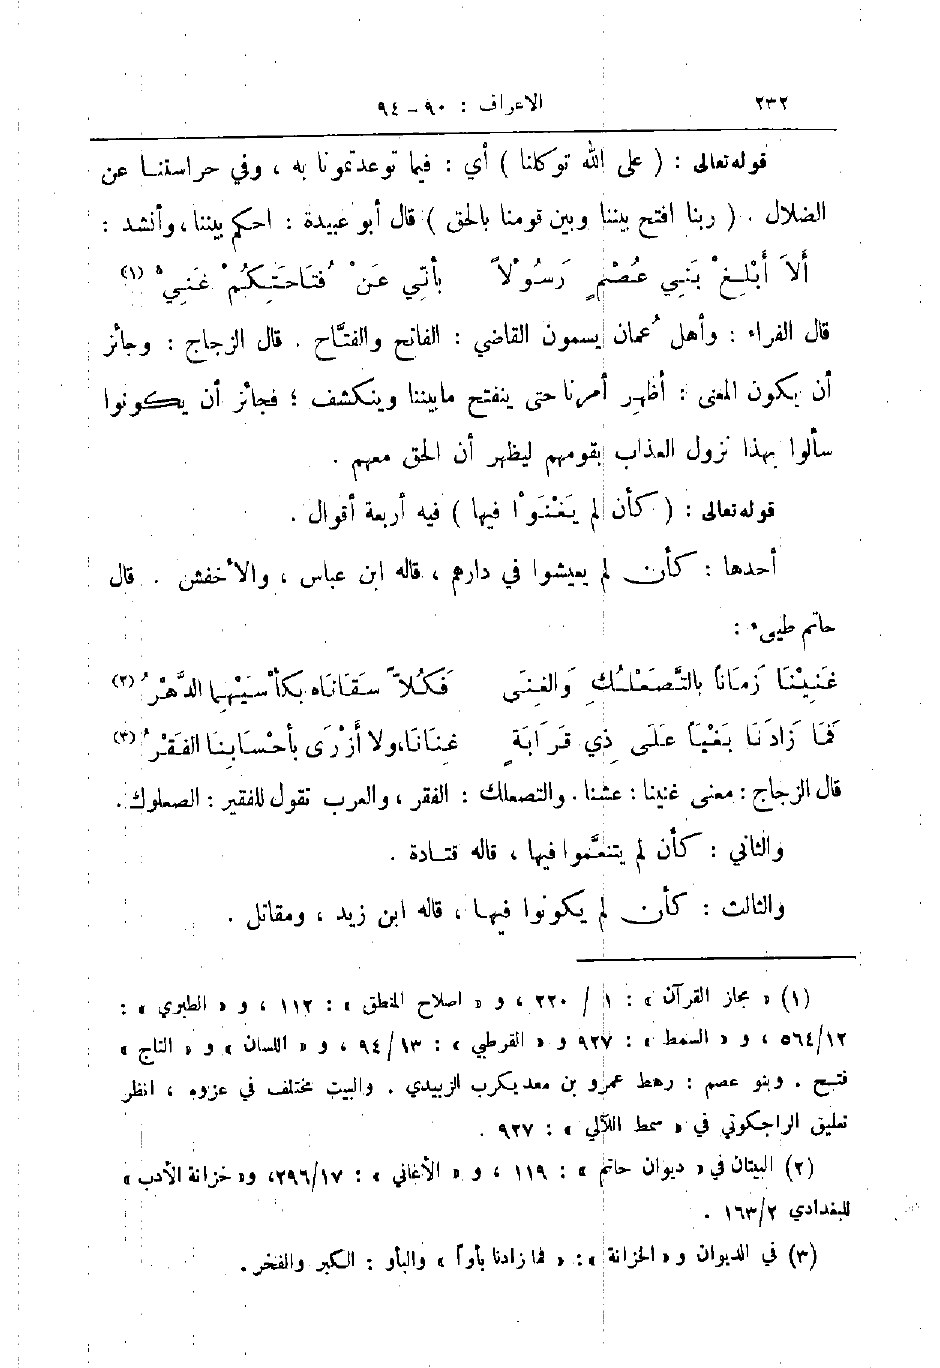 ٢٣٢ الاعراف : ٩٠ - ٩٤
قوله تعالى : ( على الله توكلنا ) أي : فيما توعدتمونا به ، وفي حراستنا عن
الضلال . ( ربنا افتح بيننا وبين قومنا بالحق ) قال أبو عبيدة : احكم بيننا ، وأنشد :
أَلاَ أَبْلِغْ بَنِي عُصْمٍ رَسُولاً بأَنِّي عَنْ فُتَاحَتِكُمْ غَنِيُّ (١)
قال الفراء : وأهل عُمان يسمون القاضي : الفاتح والفتَّاح . قال الزجاج : وجائز
أن يكون المعنى : أظهِر أمرنا حتى ينفتح مابيننا وينكشف ؛ فجائز أن يكونوا
سألوا بهذا نزول العذاب بقومهم ليظهر أن الحق معهم .
قوله تعالى : ( كأن لم يَغْنَوْا فيها ) فيه أربعة أقوال .
أحدها : كأن لم يعيشوا في دارهم ، قاله ابن عباس ، والأخفش . قال
حاتم طيىء :
غَنِيْنَا زَمَاناً بالتَّصَعْلُكِ وَالغِنَى فَكُلاًّ سقَانَاه بكأْسَيْهِما الدَّهْرُ (٢)
فَمَا زَادَنَا بَغْياً عَلَى ذِي قَرَابَةٍ غِنَانَا، ولا أَزْرَى بأحْسَابِنَا الفَقْرُ (٣)
قال الزجاج : معنى غنينا : عشنا . والتصعلك : الفقر ، والعرب تقول للفقير : الصعلوك .
والثاني : كأن لم يتنعَّموا فيها ، قاله قتادة .
والثالث : كأن لم يكونوا فيها ، قاله ابن زيد ، ومقاتل .
(١) « مجاز القرآن » : ١ / ٢٢٠ ، و « اصلاح المنطق » : ١١٢ ، و « الطبري » :
٥٦٤/١٢ ، و « السمط » : ٩٢٧ و « القرطبي » : ٩٤/١٣ ، و « اللسان » و « التاج »
فتح . وبنو عصم : رهط عمرو بن معد يكرب الزبيدي . والبيت مختلف في عزوه ، انظر
تعليق الراجكوتي في « سمط اللآلي » : ٩٢٧ .
(٢) البيتان في « ديوان حاتم » : ١١٩ ، و « الأغاني » : ٢٩٦/١٧، و« خزانة الأدب »
للبغدادي ١٦٣/٢ .
(٣) في الديوان و« الخزانة » : « فما زادنا بأواً » والبأو : الكبر والفخر .